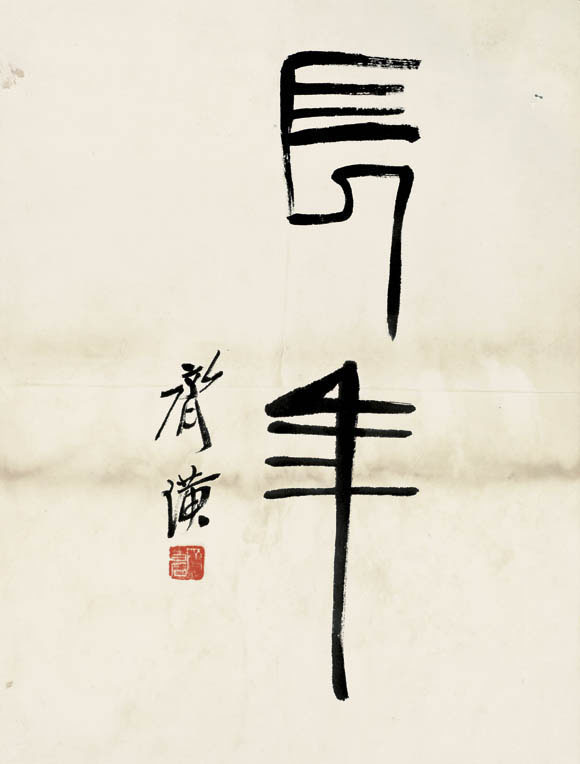 長年
齊璜